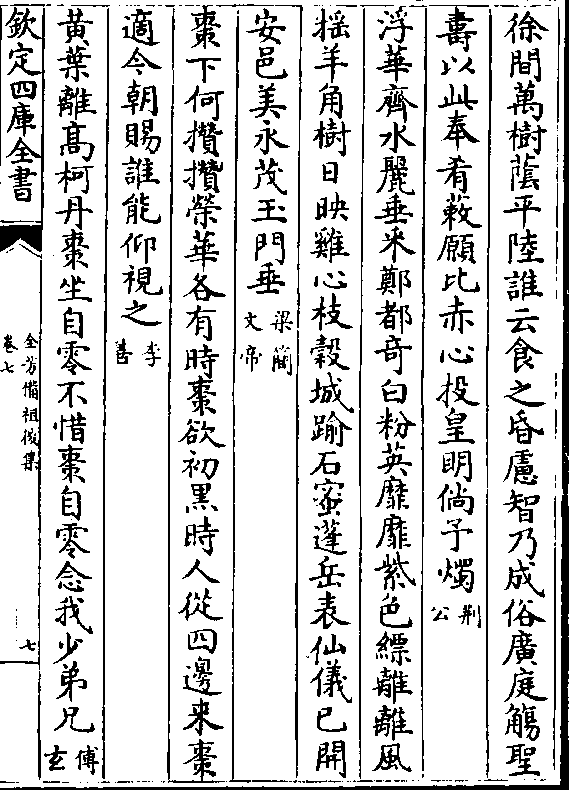 徐間萬樹䕃平陸誰云食之昏慮智乃成俗廣庭觴聖
壽以此奉肴蔌願比赤心投皇明倘予燭荆公
浮華齊水麗垂采鄭都奇白粉英靡靡紫色縹離離風
揺羊角樹日映雞心枝榖城踰石蜜蓬岳表仙儀已聞
安邑美永茂玉門垂梁簡文帝
棗下何攢攢榮華各有時棗欲初黒時人從四邊来棗
適今朝賜誰能仰視之李善
黃葉離髙柯丹棗坐自零不惜棗自零念我少弟兄傅玄
欽定四庫全書
全芳備祖後集
卷七
七